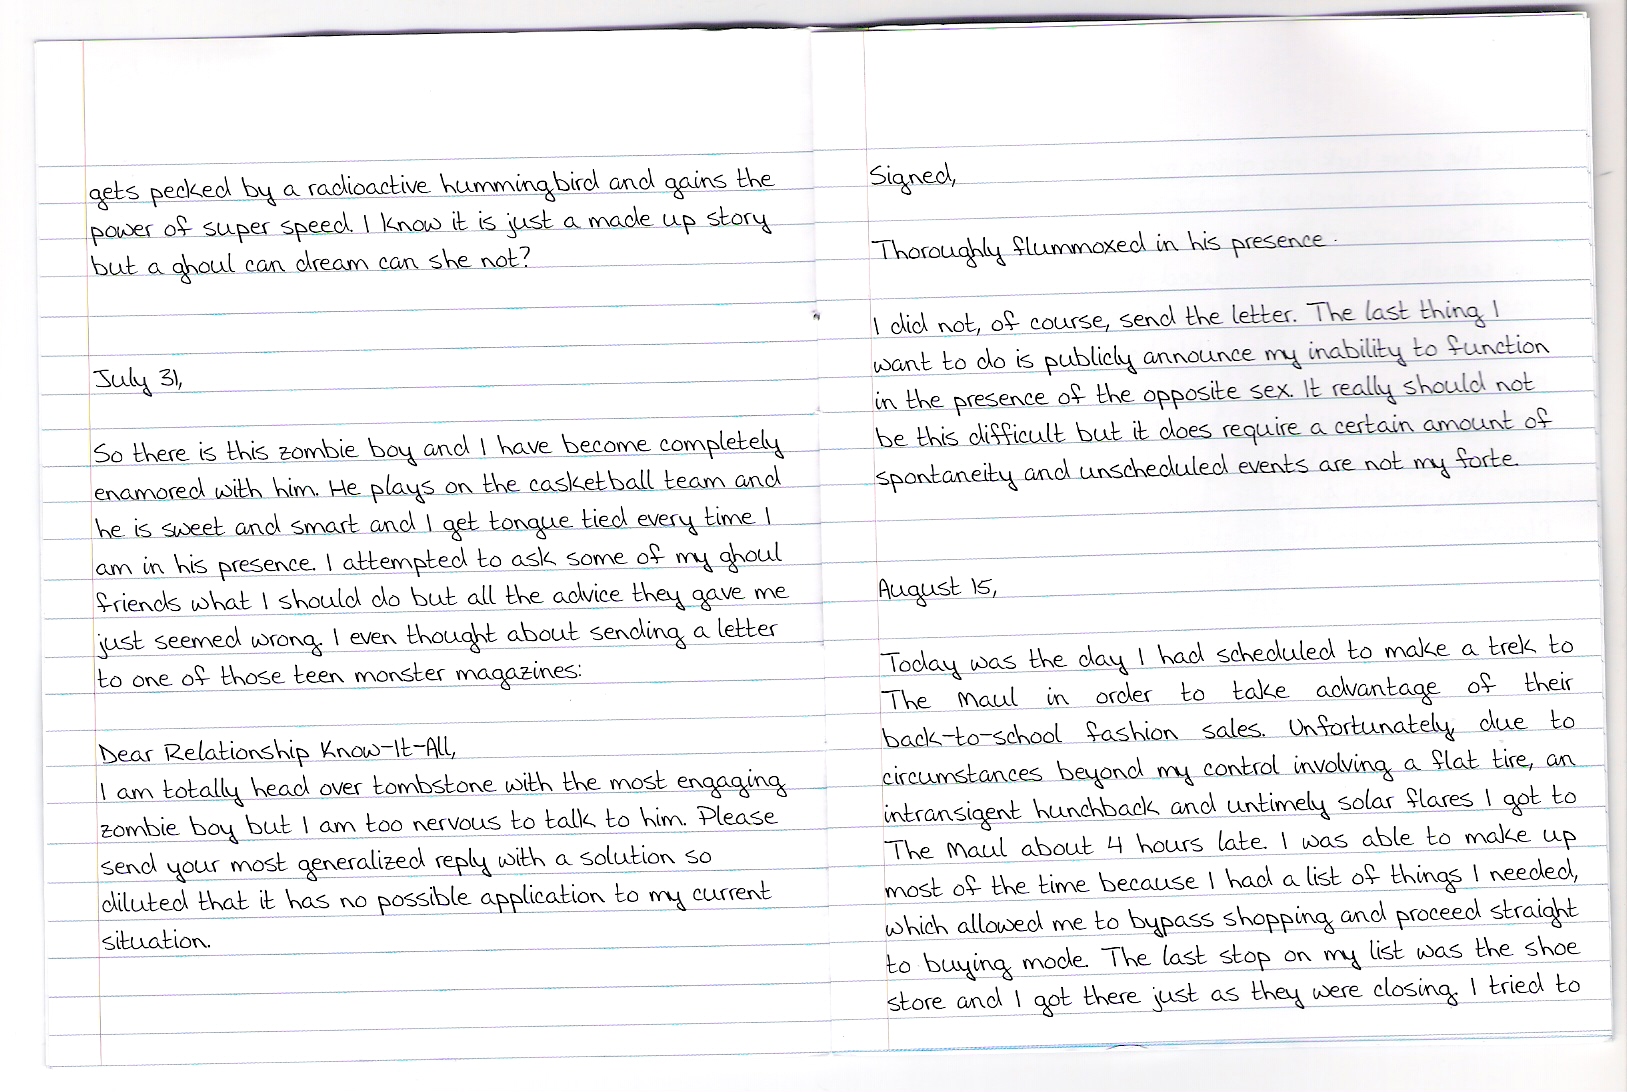 gets pecked by a radioactive hummingbird and gains the
power of super speed. I know it is just a made up story
but a ghoul can dream can she not?
July 31,
So there is this zombie boy and I have become completely
enamored with him. He plays on the casketball team and
he is sweet and smart and I get tongue tied every time I
am in his presence. I attempted to ask some of my ghoul
friends what I should do but all the advice they gave me
just seemed wrong. I even thought about sending a letter
to one of those teen monster magazines:
Dear Relationship Know-It-All,
I am totally head over tombstone with the most engaging
zombie boy but I am too nervous to talk to him. Please
send your most generalized reply with a solution so
diluted that it has no possible application to my current
situation.
Signed,
Thoroughly flummoxed in his presence.
I did not, of course, send the letter. The last thing I
want to do is publicly announce my inability to function
in the presence of the opposite sex. It really should not
be this difficult but it does require a certain amount of
spontaneity and unscheduled events are not my forte.
August 15,
Today was the day I had scheduled to make a trek to
The Maul in order to take advantage of their
back-to-school fashion sales. Unfortunately, due to
circumstances beyond my control involving a flat tire, an
intransigent hunchback and untimely solar flares I got to
The Maul about 4 hours late. I was able to make up
most of the time because I had a list of things I needed,
which allowed me to bypass shopping and proceed straight
to buying mode. The last stop on my list was the shoe
store and I got there just as they were closing. I tried to